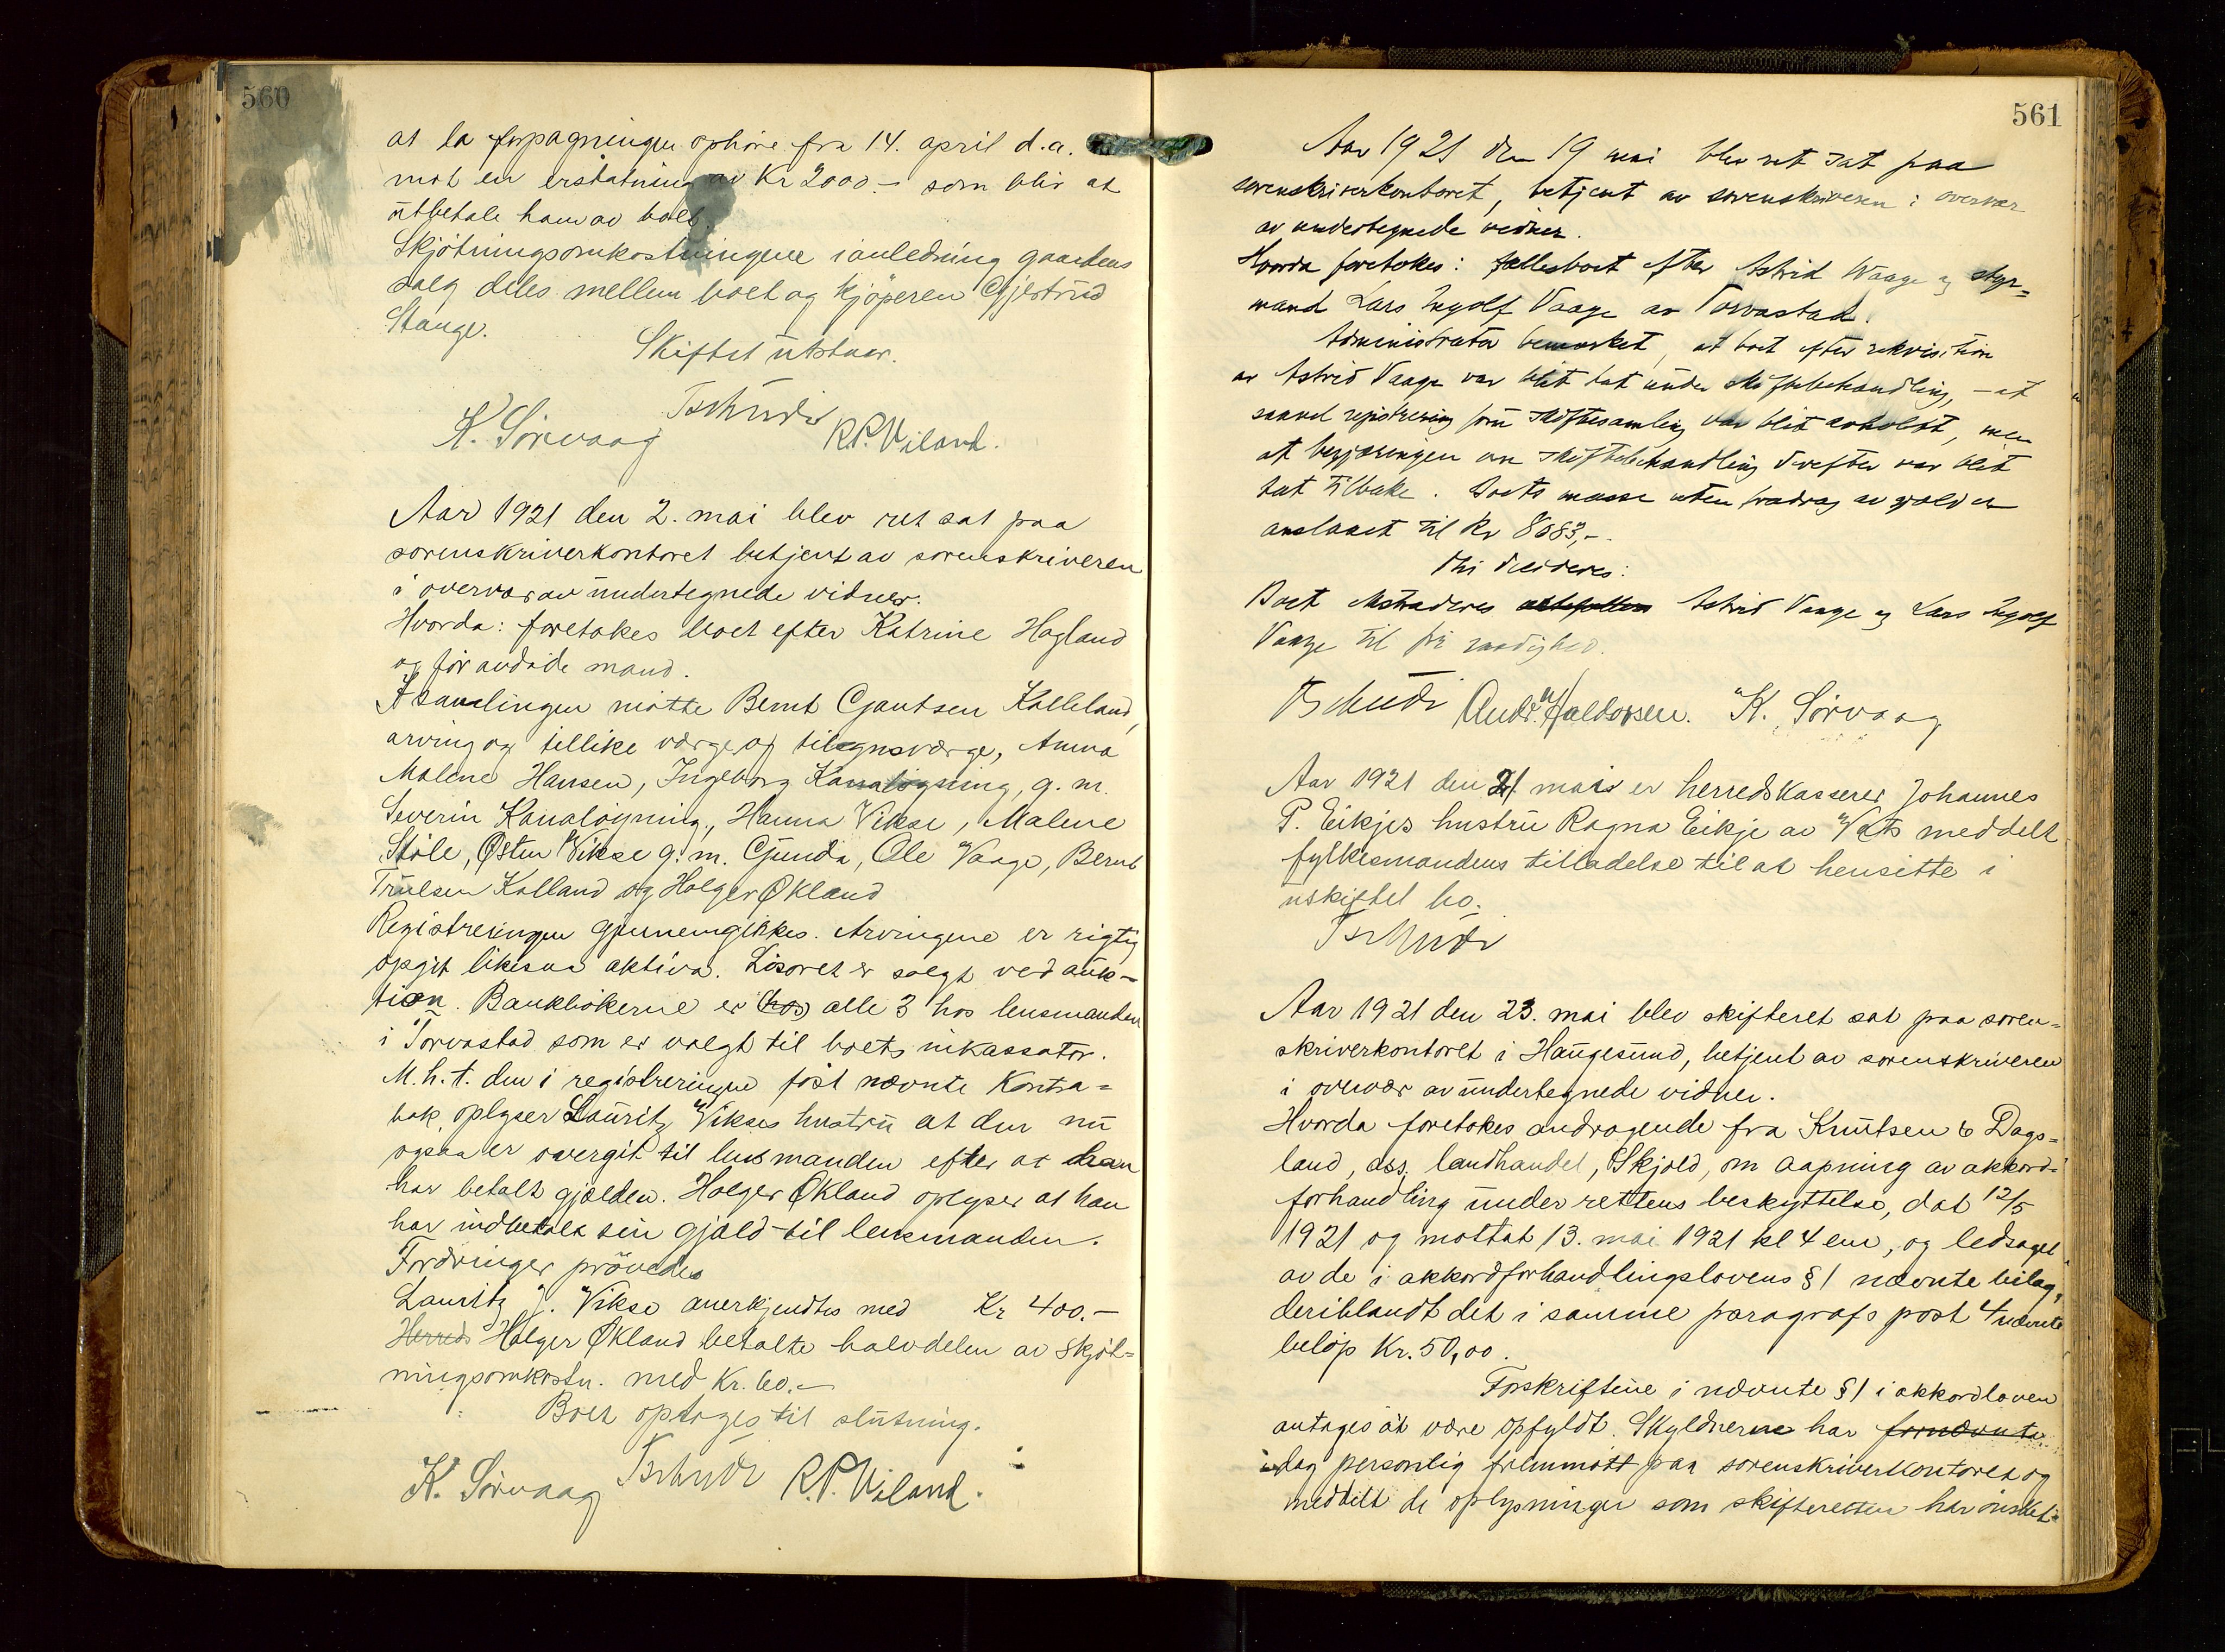 560
at la forpagningen ophöre fra 14. april d.a.
mot en erstatning av Kr 2000.- som blir at
utbetale ham av boet.
Skjötningsomkostningene i anledning gaardens
salg deles mellem boet og kjöperen Gjertrud
Stange.
Skiftet utstaar.
Tschudi
K. Sörvaag R.P. Viland.
Aar 1921 den 2. mai blev ret sat paa
sorenskriverkontoret betjent av sorenskriveren
i overvær av undertegnede vidner.
Hvorda: foretokes boet efter Katrine Hagland
og för avdöde mand.
I samlingen mötte Bernt Gjantsen Kalleland,
arving og tillike værge og tilsynsværge, Anna
Malene Hansen, Ingeborg Kanalögning, g. m.
Severin Kanalöyning, Hanna Vikse, Malene
Stöle, Østen Vikse g. m. Gunda, Ole Vaage, Bernt
Trulsen Kolland og Holger Økland
Registreringen gjennemgikkes. Arvingene er rigtig
opgit likesaa aktiva. Lösöret er solgt ved auk-
tion. Bankbökerne er hos alle 3 hos lensmanden
i Torvastad som er valgt til boets inkassator.
M.h.t. den i registreringen föst nævnte Kontra=
bok, oplyser Lauritz Vikses hustru at den nu
ogsaa er overgit til lensmanden efter at han
har betalt gjælden. Holger Økland oplyser at han
har indbetalt sin gjæld til lensmanden.
Fordringer prövedes
Lauritz J. Vikse anerkjendtes med Kr 400.-
Herreds Holger Økland betalte halvdelen av skjöt=
ningsomkostn. med Kr. 60.-
Boet optages til slutning.
Tschudi
K. Sörvaag R.P. Viland.
561
Aar 1921 den 19 mai blev ret sat paa
sorenskriverkontoret, betjent av sorenskriveren i overvær
av undertegnede vidner.
Hvorda foretokes: Fællesboet efter Astrid Waage og styr=
mand Lars Ingolf Vaage av Torvastad.
Administrator bemerket, at boet efter rekvisition
av Astrid Vaage var blit tat under skiftebehandling, - at
saavel registrering som skiftesamling var blit avholdt, men
at begjæringen om skiftebehandling derefter var blit
tat tilbake. Boets masse uten fradrag av gjæld er
anslaaet til Kr 8683,-.
Thi decideres:
Boet extraderes Astrid Vaage og Lars Ingolf
Vaage til fri raadighed.
Tschudi Andr. Haldorsen. K. Sörvaag
Aar 1921 den 21 mai er herredskasserer Johannes
P. Eikjes hustru Ragna Eikje av Vats meddelt
fylkesmandens tilladelse til at hensitte i
uskiftet bo.
Tschudi
Aar 1921 den 23. mai blev skifteret sat paa soren=
skriverkontoret i Haugesund, betjent av sorenskriveren
i overvær av undertegnede vidner.
Hvorda foretokes andragende fra Knutsen & Dags=
land, ass. landhandel, Skjold, om aapning av akkord=
forhandling under rettens beskyttelse, dat 12/5
1921 og mottat 13. mai 1921 kl 4 em, og ledsaget
av de i akkordforhandlingslovens § 1 nævnte bilag,
deriblandt det i samme paragrafs post 4 nævnte
belöp Kr. 50,00.
Forskriftene i nævnte § 1 i akkordloven
antages at være opfyldt. Skyldnerne har fornævnte
idag personlig fremmött paa sorenskriverkontoret og
meddelt de oplysninger som skifteretten har önsket.